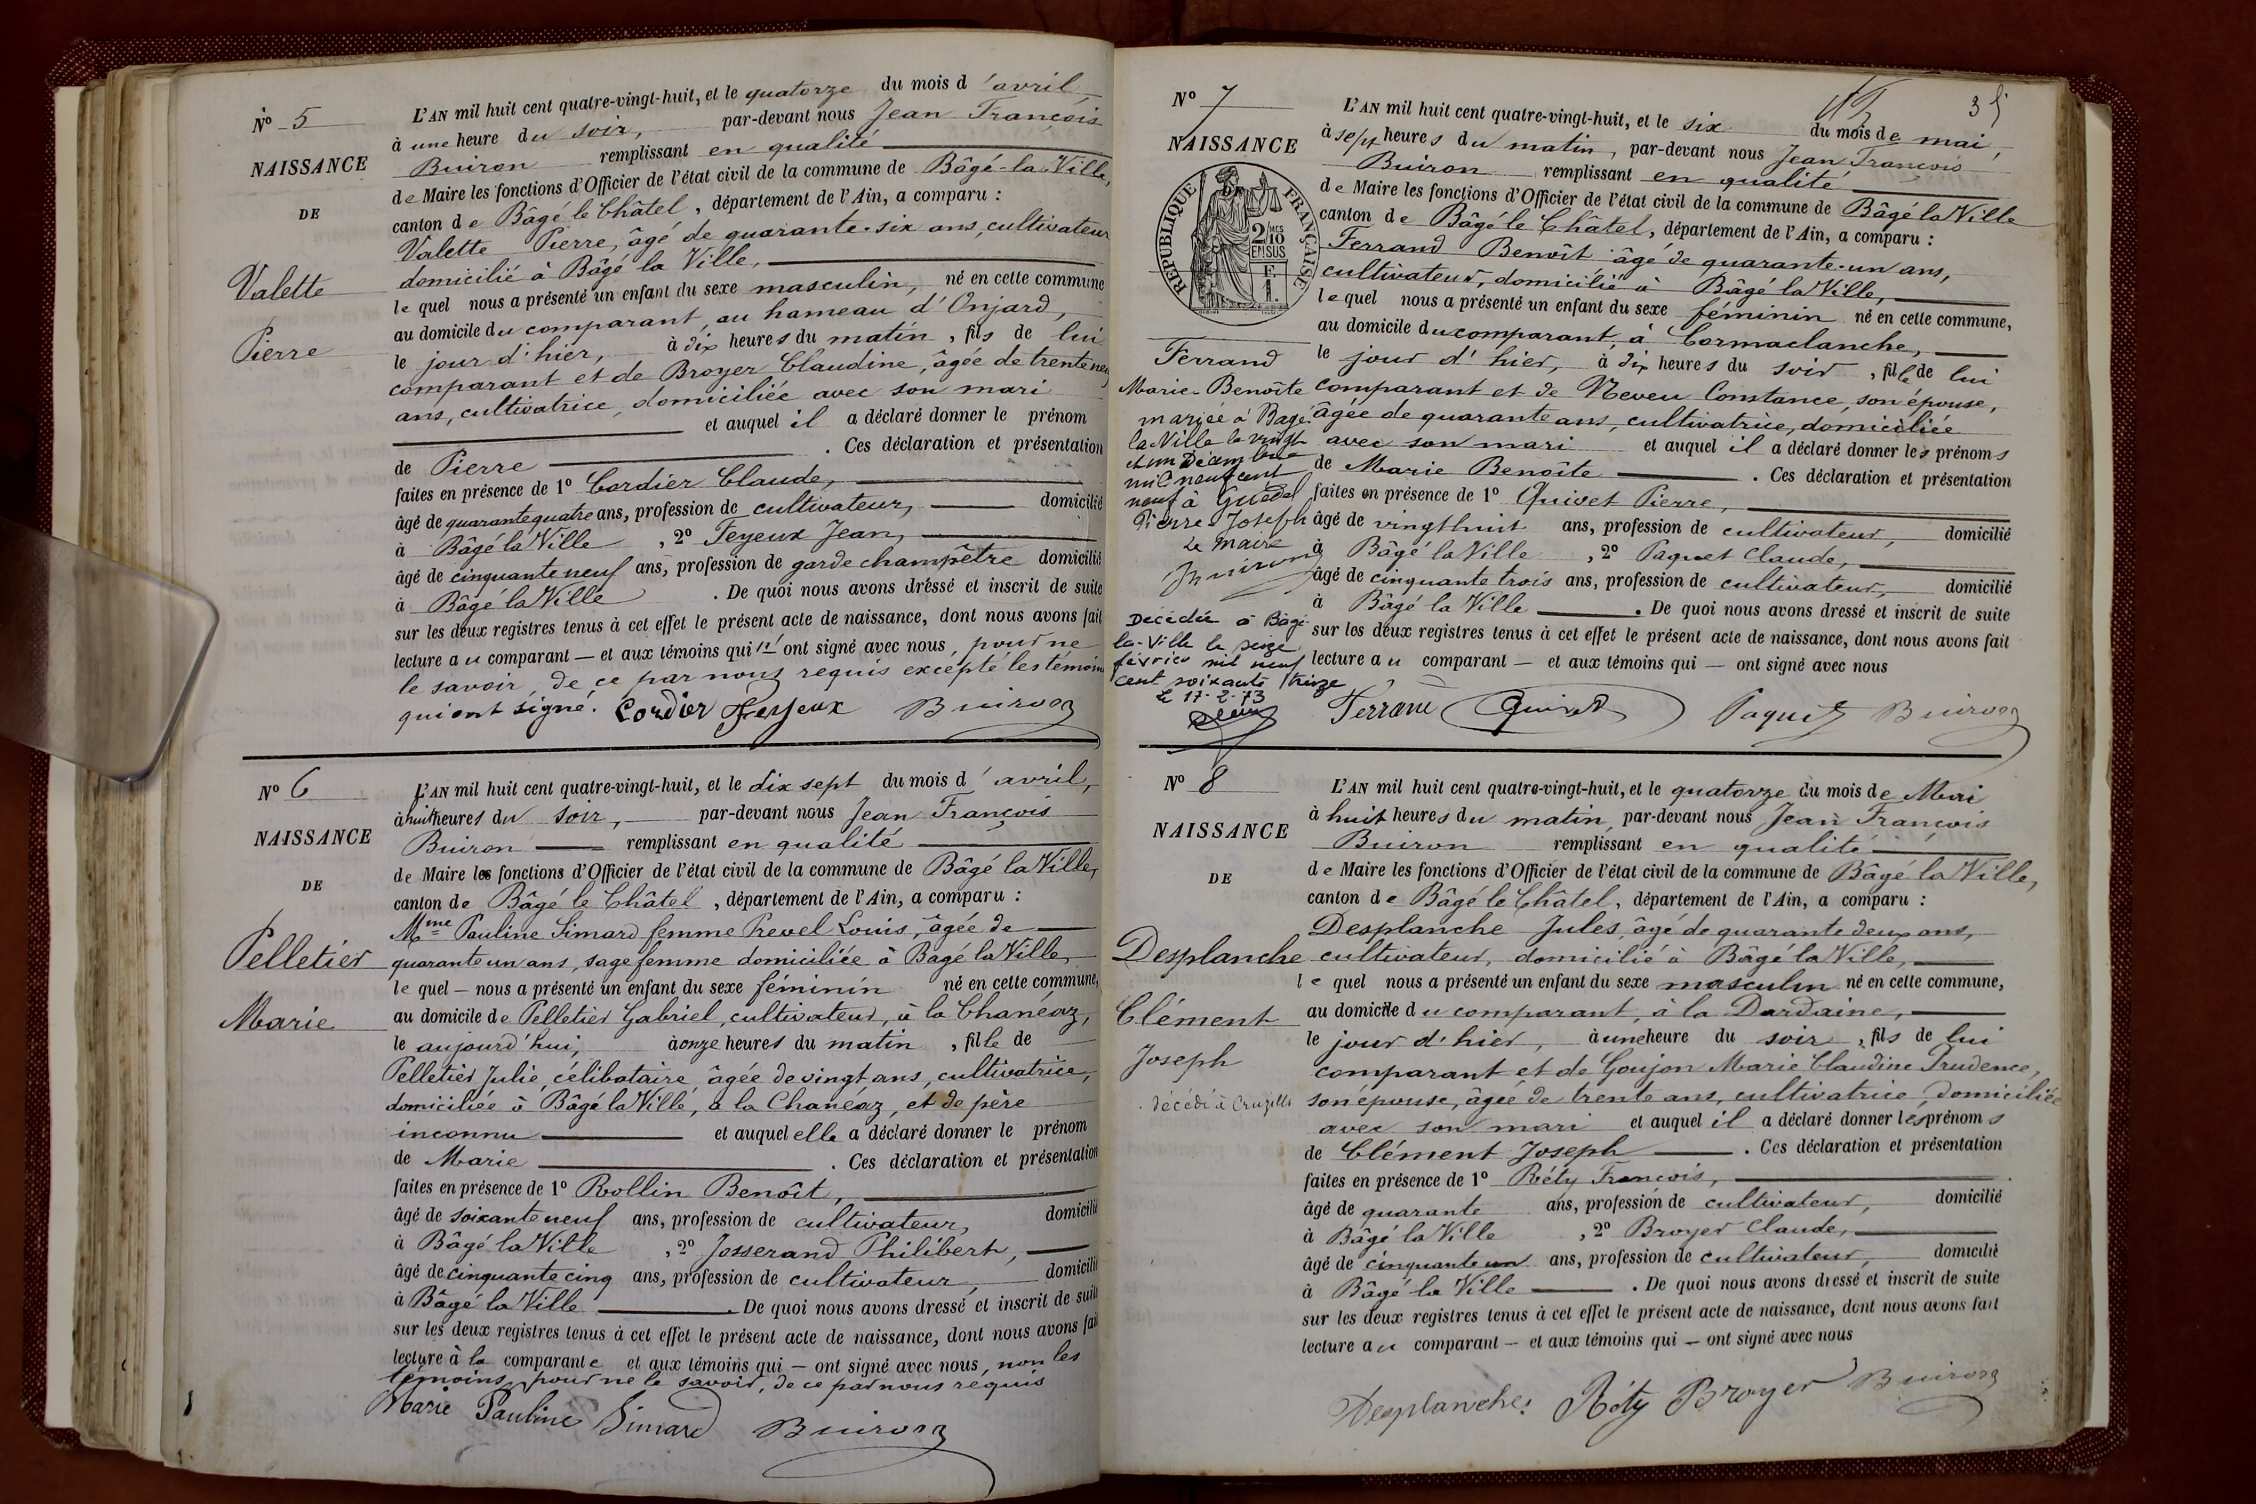 N° 5
NAISSANCE
DE
Valette
Pierre
L'AN mil huit cent quatre-vingt-huit, et le quatorze du mois d'avril,
à une heure du soir, par-devant nous Jean François
Buiron remplissant en qualité
de Maire les fonctions d'Officier de l'état civil de la commune de Bâgé-la-Ville,
canton de Bâgé le Châtel, département de l'Ain, a comparu :
Valette Pierre, âgé de quarante-six ans, cultivateur
domicilié à Bâgé la Ville,
le quel nous a présenté un enfant du sexe masculin, né en cette commune
au domicile du comparant, au hameau d'Onjard,
le jour d'hier, à dix heures du matin, fils de lui
comparant et de Broyer Claudine, âgée de trente neuf
ans, cultivatrice, domiciliée avec son mari
et auquel il a déclaré donner le prénom
de Pierre . Ces déclaration et présentation
faites en présence de 1° Cordier Claude,
âgé de quarante quatre ans, profession de cultivateur, domicilié
à Bâgé la Ville, 2° Feyeux Jean,
âgé de cinquante neuf ans, profession de garde champêtre domicilié
à Bâgé la Ville . De quoi nous avons dressé et inscrit de suite
sur les deux registres tenus à cet effet le présent acte de naissance, dont nous avons fait
lecture au comparant — et aux témoins qui n'ont signé avec nous, pour ne
le savoir, de ce par nous requis excepté les témoins
qui ont signé. Cordier Feyeux Buiron
N° 6
NAISSANCE
DE
Pelletier
Marie
L'AN mil huit cent quatre-vingt-huit, et le dix sept du mois d'avril,
à huit heures du soir, par-devant nous Jean François
Buiron remplissant en qualité
de Maire les fonctions d'Officier de l'état civil de la commune de Bâgé la Ville,
canton de Bâgé le Châtel, département de l'Ain, a comparu :
Mme Pauline Simard femme Prevel Louis, âgée de
quarante un ans, sage femme domiciliée à Bâgé la Ville,
le quel — nous a présenté un enfant du sexe féminin né en cette commune,
au domicile de Pelletier Gabriel, cultivateur, à la Chanéaz,
le aujourd'hui, à onze heures du matin, fille de
Pelletier Julie, célibataire, âgée de vingt ans, cultivatrice,
domiciliée à Bâgé la Ville, à la Chanéaz, et de père
inconnu et auquel elle a déclaré donner le prénom
de Marie . Ces déclaration et présentation
faites en présence de 1° Rollin Benoît,
âgé de soixante neuf ans, profession de cultivateur, domicilié
à Bâgé la Ville, 2° Josserand Philibert,
âgé de cinquante cinq ans, profession de cultivateur, domicilié
à Bâgé la Ville . De quoi nous avons dressé et inscrit de suite
sur les deux registres tenus à cet effet le présent acte de naissance, dont nous avons fait
lecture à la comparante et aux témoins qui — ont signé avec nous, non les
témoins pour ne le savoir, de ce par nous requis
Marie Pauline Simard Buiron
35
N° 7
NAISSANCE
RÉPUBLIQUE FRANÇAISE
2/10 MES
EN SUS
F.
1.
Ferrand
Marie-Benoîte
mariée à Bagé
la Ville le vingt
et un Décembre
mil neuf cent
neuf à Guédel
Pierre-Joseph
Le Maire
Buiron
Décédée à Bâgé
la-Ville le seize
février mil neuf
cent soixante treize
Le 17-2-73
L'AN mil huit cent quatre-vingt-huit, et le six du mois de mai,
à sept heures du matin, par-devant nous Jean François
Buiron remplissant en qualité
de Maire les fonctions d'Officier de l'état civil de la commune de Bâgé la Ville
canton de Bâgé le Châtel, département de l'Ain, a comparu :
Ferrand Benoît âgé de quarante-un ans,
cultivateur, domicilié à Bâgé la Ville,
le quel nous a présenté un enfant du sexe féminin né en cette commune,
au domicile du comparant, à Cormaclanche,
le jour d'hier, à dix heures du soir, fille de lui
comparant et de Neveu Constance, son épouse,
âgée de quarante ans, cultivatrice, domiciliée
avec son mari et auquel il a déclaré donner les prénoms
de Marie Benoîte . Ces déclaration et présentation
faites en présence de 1° Quivet Pierre,
âgé de vingt huit ans, profession de cultivateur, domicilié
à Bâgé la Ville, 2° Paquet Claude,
âgé de cinquante trois ans, profession de cultivateur, domicilié
à Bâgé la Ville . De quoi nous avons dressé et inscrit de suite
sur les deux registres tenus à cet effet le présent acte de naissance, dont nous avons fait
lecture au comparant — et aux témoins qui — ont signé avec nous
Ferrand Quivet Paquet Buiron
N° 8
NAISSANCE
DE
Desplanche
Clément
Joseph
décédé à Cruzilles
L'AN mil huit cent quatre-vingt-huit, et le quatorze du mois de Mai
à huit heures du matin, par-devant nous Jean François
Buiron remplissant en qualité
de Maire les fonctions d'Officier de l'état civil de la commune de Bâgé la Ville,
canton de Bâgé le Châtel, département de l'Ain, a comparu :
Desplanche Jules, âgé de quarante deux ans,
cultivateur, domicilié à Bâgé la Ville,
le quel nous a présenté un enfant du sexe masculin né en cette commune,
au domicile du comparant, à la Dardaine,
le jour d'hier, à une heure du soir, fils de lui
comparant et de Goujon Marie Claudine Prudence,
son épouse, âgée de trente ans, cultivatrice, domiciliée
avec son mari et auquel il a déclaré donner les prénoms
de Clément Joseph . Ces déclaration et présentation
faites en présence de 1° Réty François,
âgé de quarante ans, profession de cultivateur, domicilié
à Bâgé la Ville, 2° Broyer Claude,
âgé de cinquante un ans, profession de cultivateur, domicilié
à Bâgé la Ville . De quoi nous avons dressé et inscrit de suite
sur les deux registres tenus à cet effet le présent acte de naissance, dont nous avons fait
lecture au comparant — et aux témoins qui — ont signé avec nous
Desplanches Réty Broyer Buiron